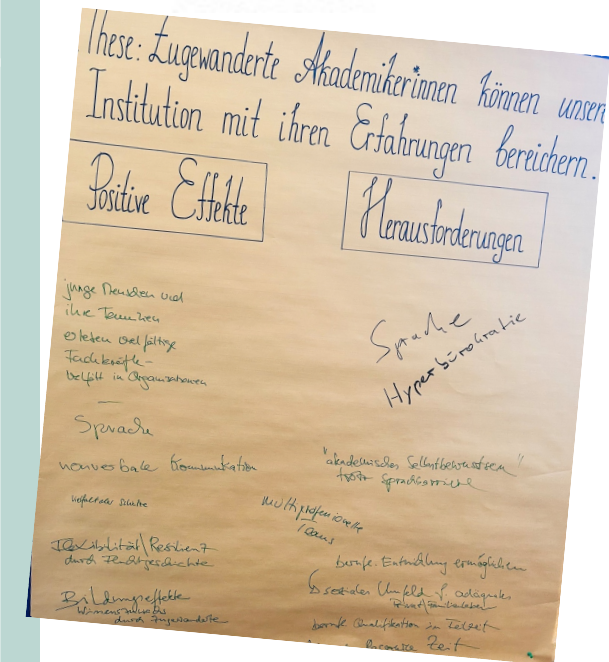 These: Zugewanderte Akademiker*innen können unsere
Institution mit ihren Erfahrungen bereichern.
Positive Effekte
junge Menschen und
ihre Familien
erleben vielfältige
Fachkräfte -
Vielfalt in Organisationen
—
Sprache
nonverbale Kommunikation
Flexibilität/Resilienz
durch Fluchtgeschichte
Bildungseffekte
Wissenszuwachs
durch Zugewanderte
Herausforderungen
Sprache
Hyperbürokratie
"akademisches Selbstbewusstsein"
trotz Sprachbarriere
multiprofessionelle
Teams
berufl. Entwicklung ermöglichen
soziales Umfeld f. adäquates
Privat/Familienleben
berufl. Qualifikation in Teilzeit
Ressource Zeit